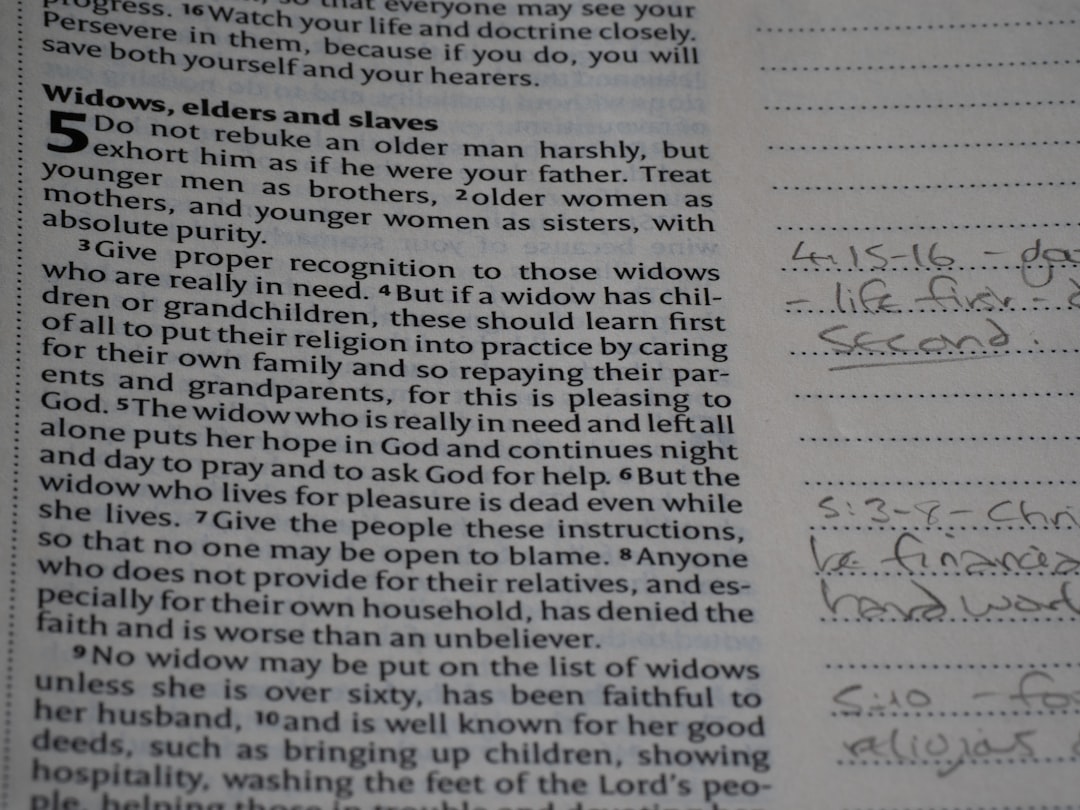 progress. 16 Watch your life and doctrine closely.
Persevere in them, because if you do, you will
save both yourself and your hearers.
Widows, elders and slaves
5 Do not rebuke an older man harshly, but
exhort him as if he were your father. Treat
younger men as brothers, 2 older women as
mothers, and younger women as sisters, with
absolute purity.
3 Give proper recognition to those widows
who are really in need. 4 But if a widow has chil-
dren or grandchildren, these should learn first
of all to put their religion into practice by caring
for their own family and so repaying their par-
ents and grandparents, for this is pleasing to
God. 5 The widow who is really in need and left all
alone puts her hope in God and continues night
and day to pray and to ask God for help. 6 But the
widow who lives for pleasure is dead even while
she lives. 7 Give the people these instructions,
so that no one may be open to blame. 8 Anyone
who does not provide for their relatives, and es-
pecially for their own household, has denied the
faith and is worse than an unbeliever.
9 No widow may be put on the list of widows
unless she is over sixty, has been faithful to
her husband, 10 and is well known for her good
deeds, such as bringing up children, showing
hospitality, washing the feet of the Lord's peo-
4:15-16 -
- life first -
second.
5:3-8 - Chri
be
5:10 -